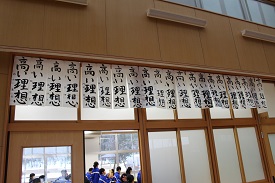 高い理想
高い理想
高い理想
高い理想
高い理想
高い理想
高い理想
高い理想
高い理想
高い理想
高い理想
高い理想
高い理想
高い理想